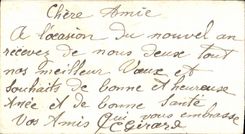 Chère Amie
A l'ocasion du nouvel an
recevez de nous deux tout
nos meilleur Vœux et
souhaits de bonne et heureuse
Anée et de bonne Santé
Vos Amis Qui vous embrasse
Gérard